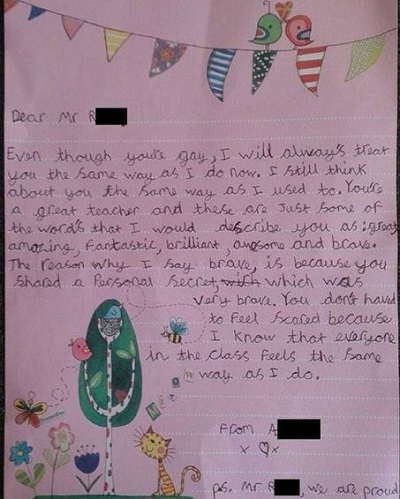 Dear Mr R
Even though you're gay, I will always treat
you the same way as I do now. I still think
about you the same way as I used to. You're
a great teacher and these are Just some of
the word's that I would describe you as: great,
amazing, fantastic, brilliant, awsome and brave.
The reason why I say brave, is because you
shared a Personal Secret which was
very brave. You don't have
to Feel Scared because
I know that everyone
in the Class Feels the Same
way as I do.
Meow
From A
x x
ps. Mr R , we are proud